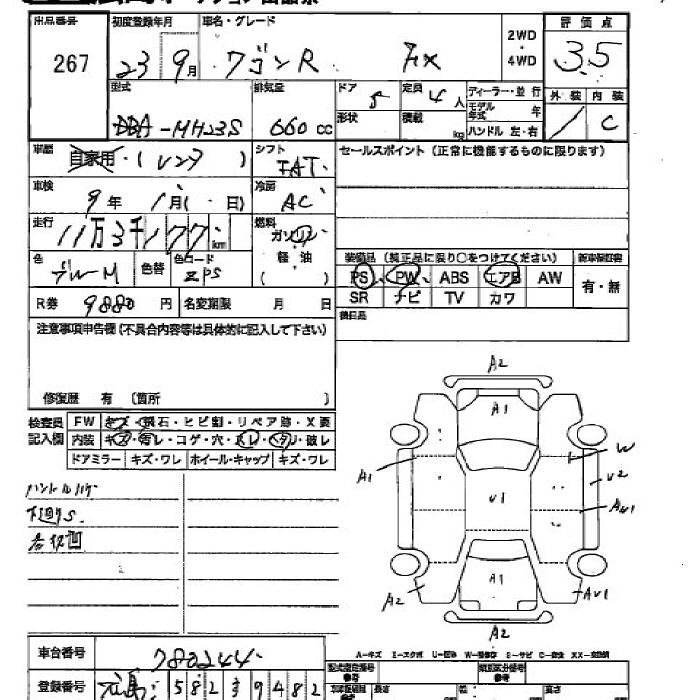 出品番号 初度登録年月 車名・グレード 2WD・4WD 評価点
267 23年 9月 ワゴンR FX 3.5
型式 排気量 ドア 定員 ディーラー・並行 外装 内装
DBA-MH23S 660cc 5 4人 モデル年式 年 C
形状 積載 kg ハンドル 左・右
車歴 自家用・(レンタ) シフト FAT セールスポイント(正常に機能するものに限ります)
車検 9年 1月(・日) 冷房 AC
走行 11万3千177km 燃料 ガソリン
軽油 ( )
色 ブルーM 色替 色コード ZPS
装備品(純正品に限り○をつけてください) 新車保証書
PS PW ABS エアB AW 有・無
SR ナビ TV カワ
R券 9880円 名変期限 月 日 後日品
注意事項申告欄(不具合内容等は具体的に記入して下さい)
修復歴 有 (箇所 )
検査員記入欄 FW キズ・飛石・ヒビ割・リペア跡・X要
内装 キズ・汚レ・コゲ・穴・スレ・ヘタリ・破レ
ドアミラー キズ・ワレ ホイール・キャップ キズ・ワレ
下廻りS
A2
A1
A1 W
U1 U2
A1
A2
A2
車台番号 780244
登録番号 広島 582 9482